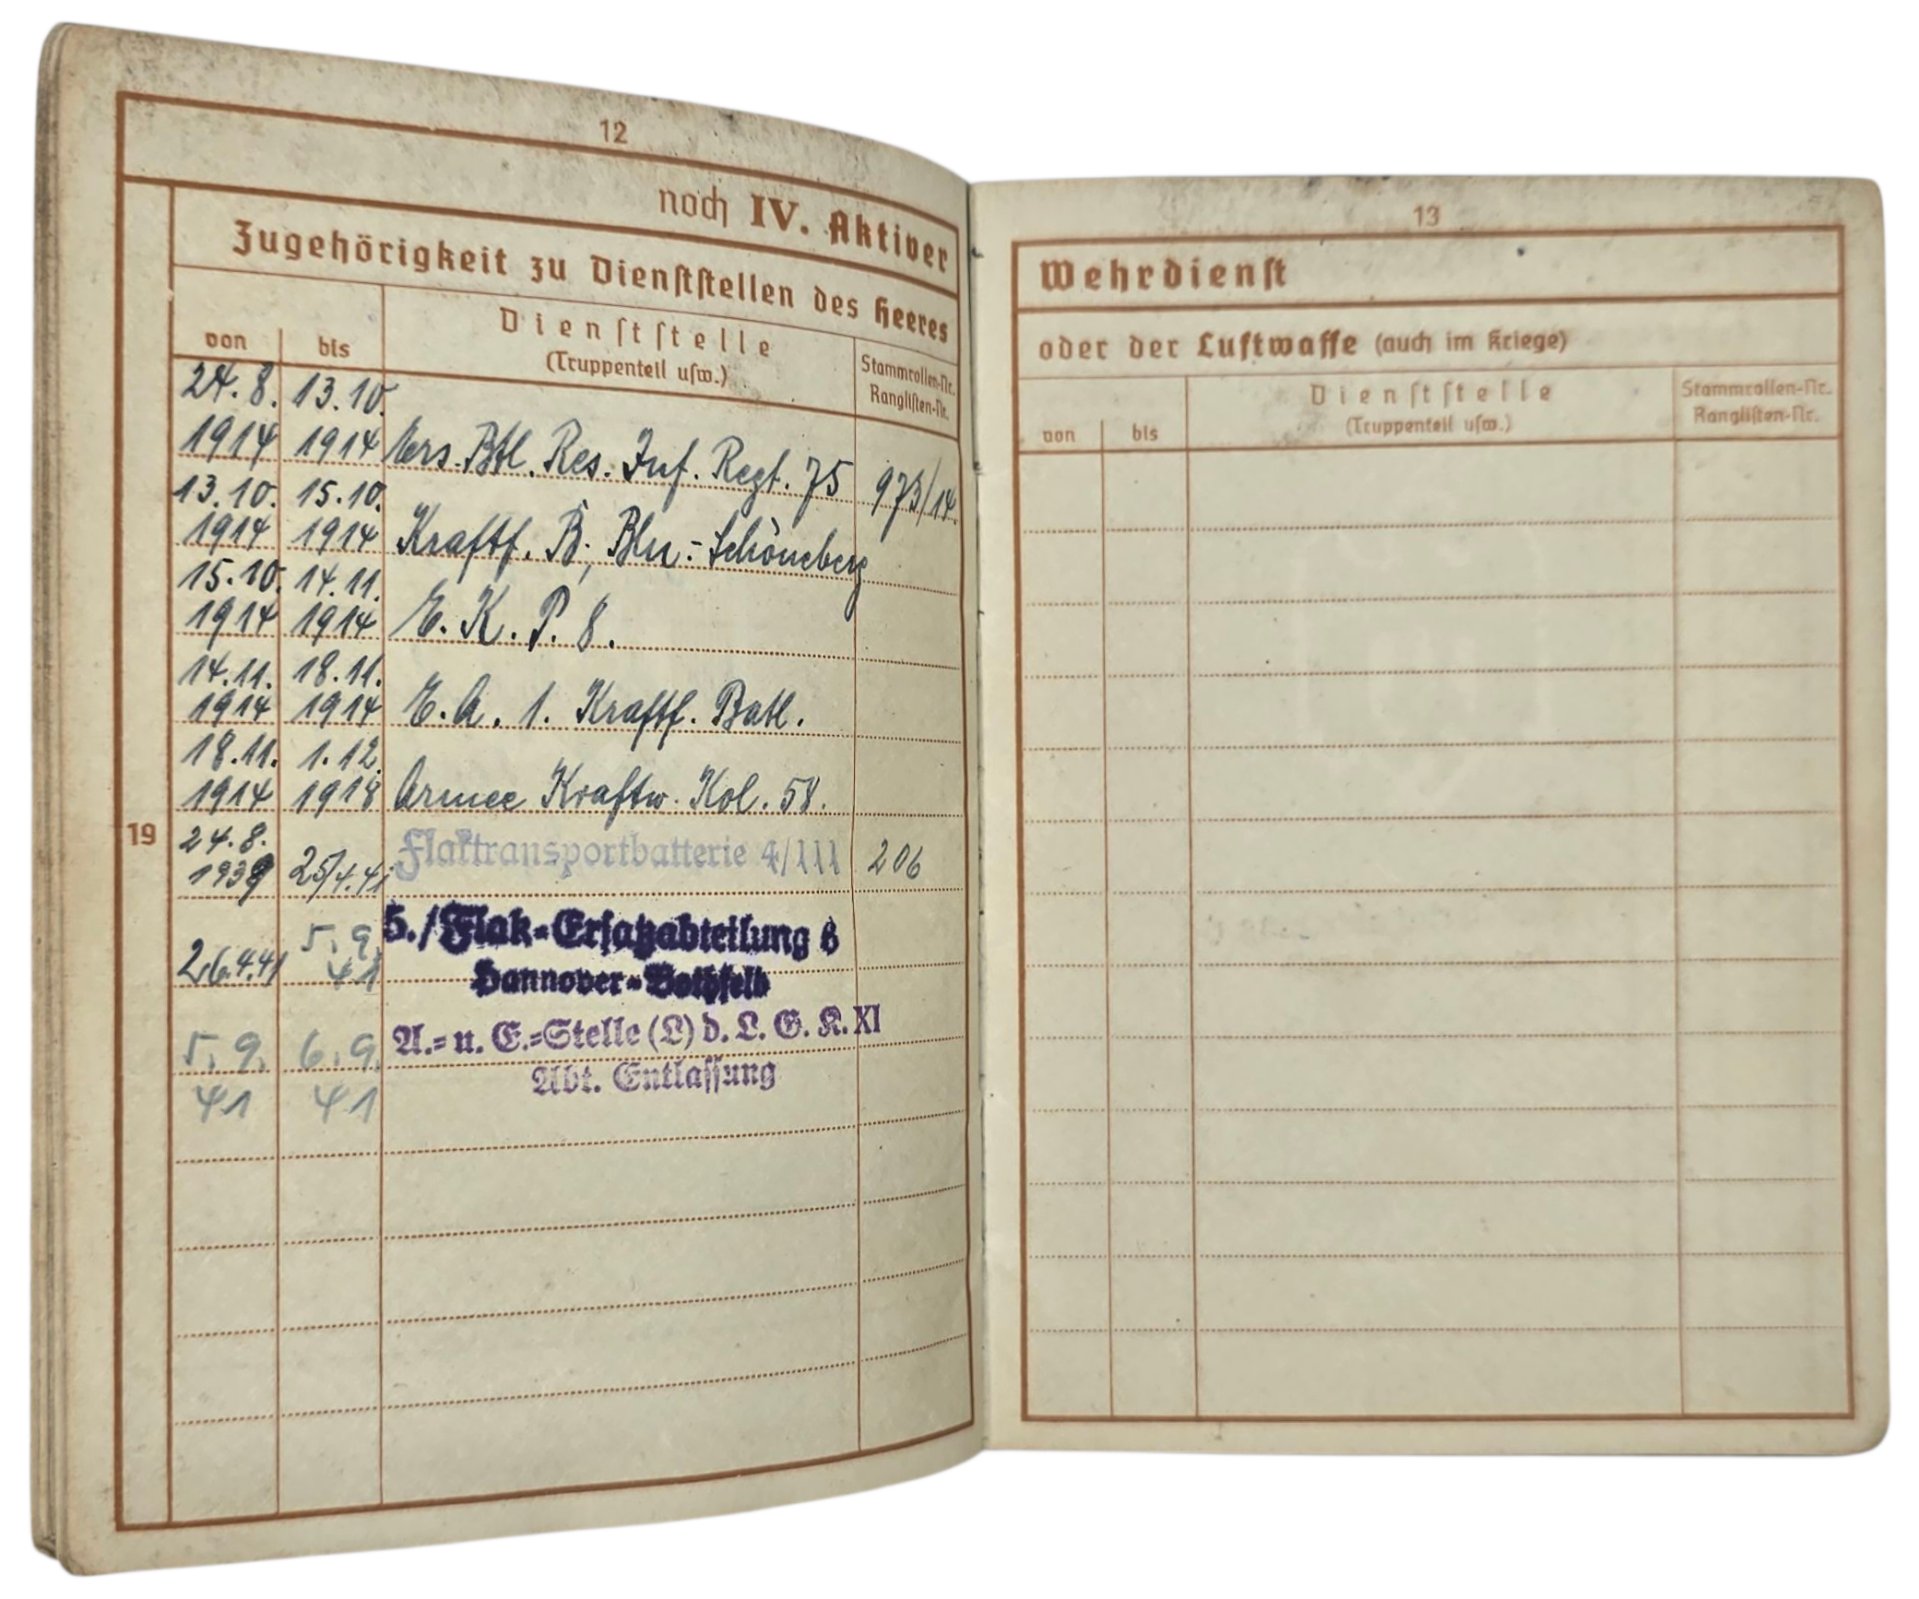 12
noch IV. Aktiver
Zugehörigkeit zu Dienststellen des Heeres
von bis Dienststelle (Truppenteil usw.) Stammrollen-Nr. Ranglisten-Nr.
24.8. 13.10.
1914 1914 Ers. Btl. Res. Inf. Regt. 75 973/14
13.10. 15.10.
1914 1914 Kraftf. B; Bln.-Schöneberg
15.10. 14.11.
1914 1914 E. K. P. 8.
14.11. 18.11.
1914 1914 E. A. 1. Kraftf. Batl.
18.11. 1.12.
1914 1918 Armee Kraftw. Kol. 58.
19
24.8.
1939 25/4.41 Flaktransportbatterie 4/III 206
5./Flak-Ersatzabteilung 8
26.4.41 5.9.41 Hannover-Bothfeld
5.9. 6.9. A.- u. E.-Stelle (L) d. L. G. K. XI
41 41 Abt. Entlassung
13
Wehrdienst
oder der Luftwaffe (auch im Kriege)
von bis Dienststelle (Truppenteil usw.) Stammrollen-Nr. Ranglisten-Nr.